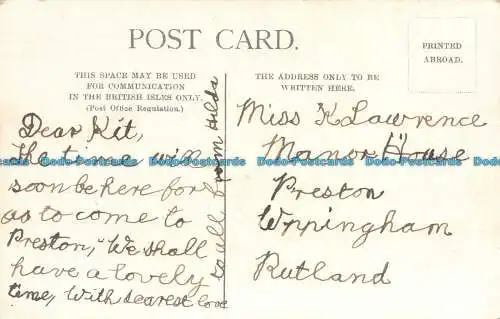 POST CARD.
PRINTED
ABROAD.
THIS SPACE MAY BE USED
FOR COMMUNICATION
IN THE BRITISH ISLES ONLY.
(Post Office Regulation.)
THE ADDRESS ONLY TO BE
WRITTEN HERE.
Dear Kit,
the time will
soon be here for
as to come to
Preston, We shall
have a lovely
time, With dearest love
to all from Hilda
Miss K Lawrence
Manor House
Preston
Uppingham
Rutland
Dodo-Postcards Dodo-Postcards Dodo-Postcards Dodo-Postcards Dodo-Postcards